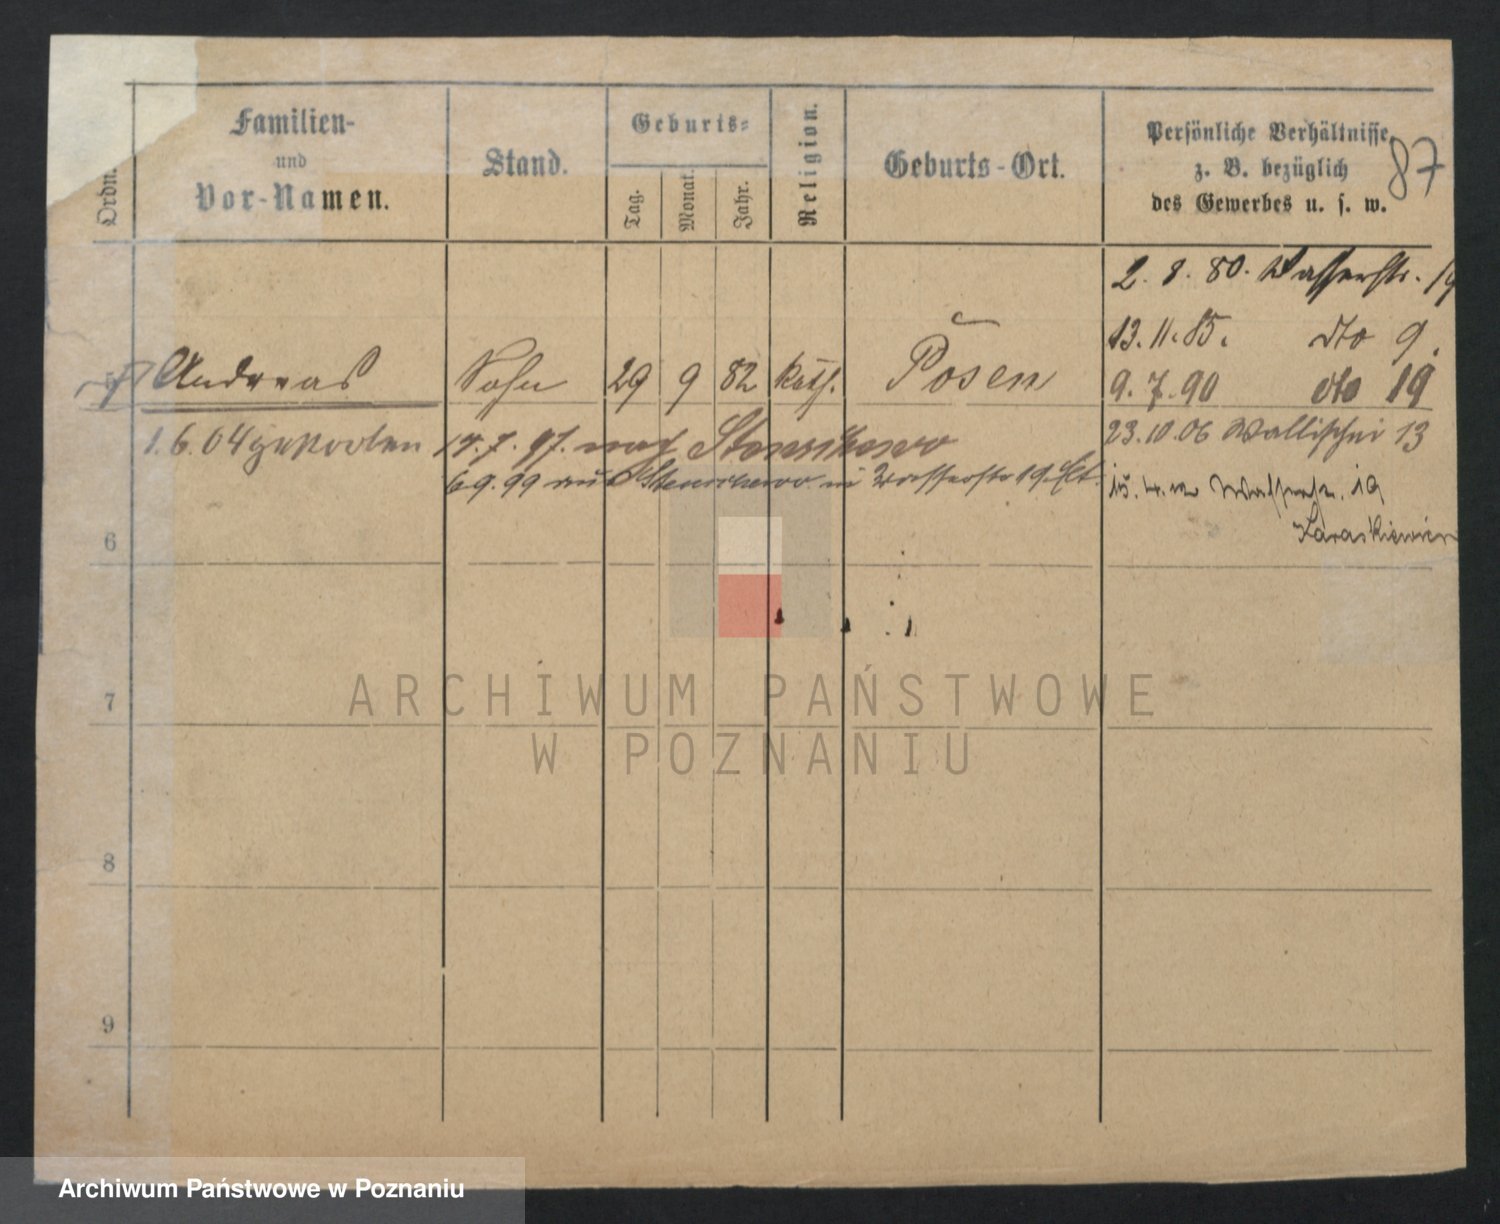 Ordn.
Familien-
und
Vor-Namen.
Stand.
Geburts-
Tag.
Monat.
Jahr.
Religion.
Geburts-Ort.
Persönliche Verhältnisse
z. B. bezüglich
des Gewerbes u. s. w.
87
2. 8. 80. Wasserstr. 19
13. 11. 85. dto 9.
5 Andreas Sohn 29 9 82 kath. Posen 9. 7. 90 dto 19
1. 6. 04 gestorben 17. 7. 97. nach 23.10.06 Wallischei 13
6 9. 99 aus in Wasserstr 19 Wasserstr. 19
6
7
8
9
ARCHIWUM PAŃSTWOWE
W POZNANIU
Archiwum Państwowe w Poznaniu